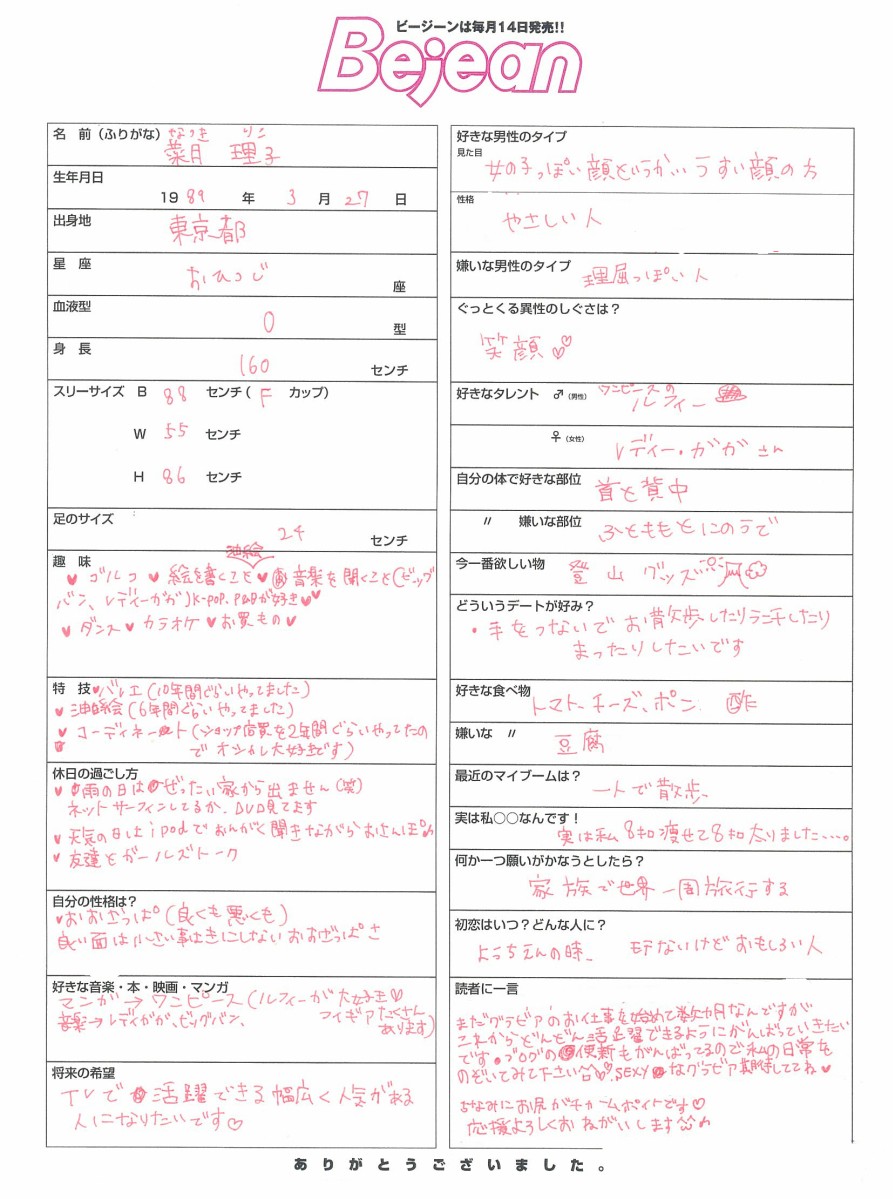 ビージーンは毎月14日発売!!
Bejean
名 前(ふりがな) なつき りこ
菜月 理子
生年月日
1989年 3月27日
出身地
東京都
星 座
おひつじ 座
血液型
O 型
身 長
160 センチ
スリーサイズ B 88 センチ( F カップ)
W 55 センチ
H 86 センチ
足のサイズ
24 センチ
趣 味
油絵
♥ゴルフ ♥絵を書くこと ♥音楽を聞くこと(ビッグ
バン、レディーガガ、K-POP、R&Bが好き♥♥
♥ダンス♥カラオケ♥お買もの♥
特 技 ♥バレエ(10年間ぐらいやってました)
♥油絵(6年間ぐらいやってました)
♥コーディネート(ショップ店員を2年間ぐらいやってたの
でオシャレ大好きです)
休日の過ごし方
♥雨の日はぜったい家から出ません(笑)
ネットサーフィンしてるか、DVD見てます
♥天気の日はipodでおんがく聞きながらおさんぽ♪
♥友達とガールズトーク
自分の性格は?
♥おおざっぱ(良くも悪くも)
良い面は小さい事はきにしないおおざっぱさ
好きな音楽・本・映画・マンガ
マンガ→ワンピース(ルフィーが大好き♡
フィギアたくさん
あります)
音楽→レディガガ、ビッグバン、
将来の希望
TVで活躍できる幅広く人気がある
人になりたいです♡
好きな男性のタイプ
見た目
女の子っぽい顔というか…うすい顔の方
性格
やさしい人
嫌いな男性のタイプ
理屈っぽい人
ぐっとくる異性のしぐさは?
笑顔♡♡
好きなタレント ♂(男性) ワンピースの
ルフィー
♀(女性)
レディー・ガガさん
自分の体で好きな部位
首と背中
〃 嫌いな部位
ふとももとにのうで
今一番欲しい物
登山グッズ
どういうデートが好み?
・手をつないでお散歩したりランチしたり
まったりしたいです
好きな食べ物
トマト、チーズ、ポン酢
嫌いな 〃
豆腐
最近のマイブームは?
一人で散歩、
実は私○○なんです!
実は私8キロ痩せて8キロ太りました….。
何か一つ願いがかなうとしたら?
家族で世界一周旅行する
初恋はいつ?どんな人に?
ようちえんの時、 モテないけどおもしろい人
読者に一言
まだグラビアのお仕事を始めて数カ月なんですが
これからどんどん活躍できるようにがんばっていきたい
です。ブログの更新もがんばってるので私の日常を
のぞいてみて下さい♡ SEXYなグラビア期待しててね♥
ちなみにお尻がチャームポイントです♡
応援よろしくおねがいします♪
ありがとうございました。